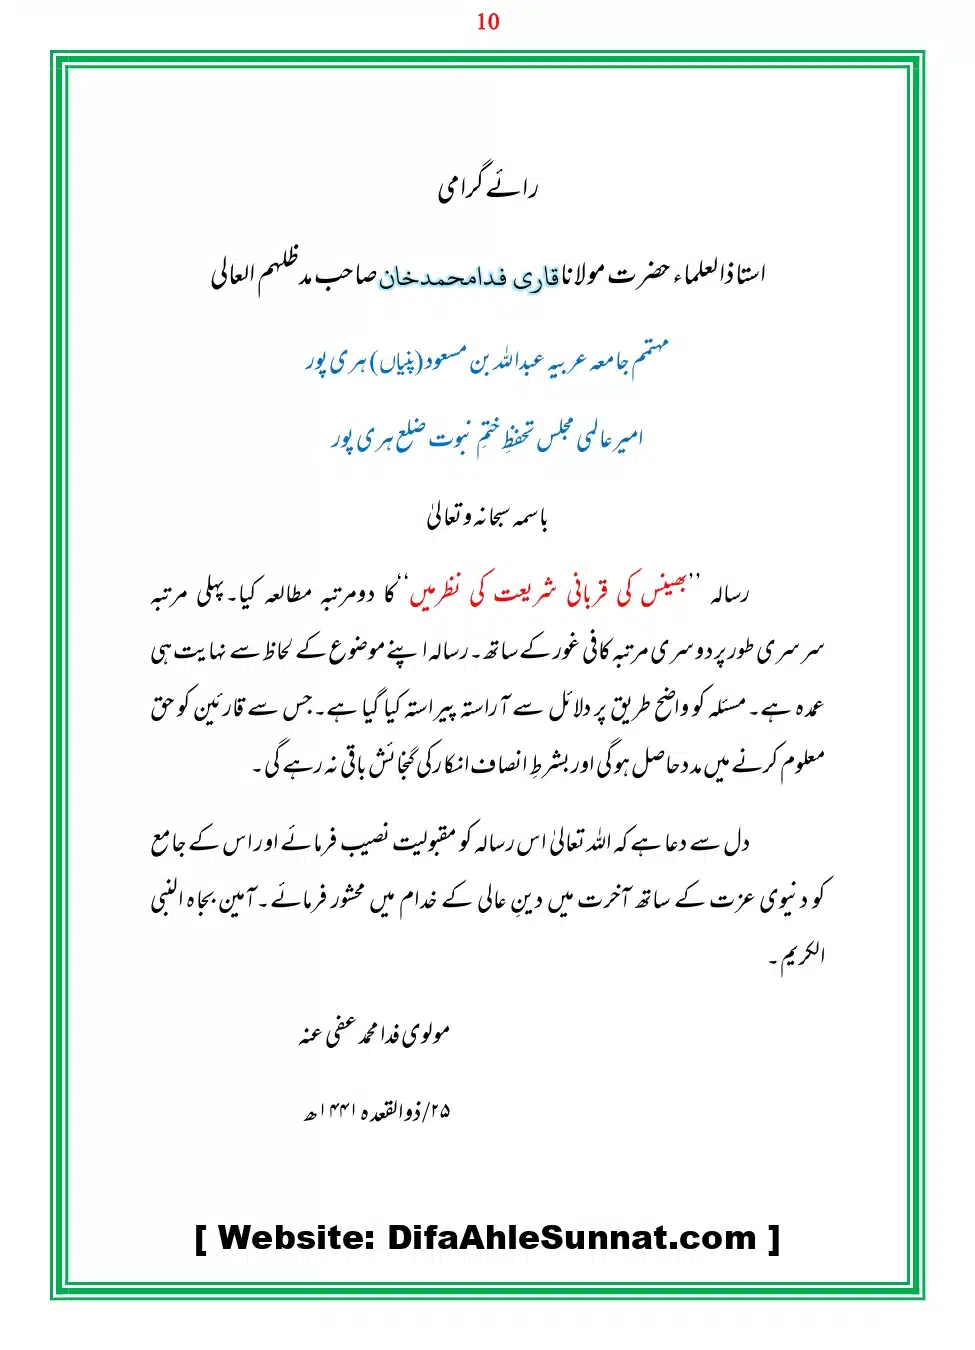 10
رائے گرامی
استاذالعلماء حضرت مولانا قاری فدامحمدخان صاحب مدظلہم العالی
مہتمم جامعہ عربیہ عبداللہ بن مسعود (پنیاں) ہری پور
امیر عالمی مجلس تحفظِ ختمِ نبوت ضلع ہری پور
باسمہ سبحانہ وتعالیٰ
رسالہ ’’بھینس کی قربانی شریعت کی نظرمیں‘‘ کا دومرتبہ مطالعہ کیا۔ پہلی مرتبہ
سرسری طور پر دوسری مرتبہ کافی غور کے ساتھ۔ رسالہ اپنے موضوع کے لحاظ سے نہایت ہی
عمدہ ہے۔ مسئلہ کو واضح طریق پر دلائل سے آراستہ پیراستہ کیا گیا ہے۔ جس سے قارئین کو حق
معلوم کرنے میں مدد حاصل ہوگی اور بشرطِ انصاف انکار کی گنجائش باقی نہ رہے گی۔
دل سے دعا ہے کہ اللہ تعالیٰ اس رسالہ کو مقبولیت نصیب فرمائے اور اس کے جامع
کو دنیوی عزت کے ساتھ آخرت میں دینِ عالی کے خدام میں محشور فرمائے۔ آمین بجاہ النبی
الکریم۔
مولوی فدا محمد عفی عنہ
۲۵/ذوالقعدہ ۱۴۴۱ھ
[ Website: DifaAhleSunnat.com ]